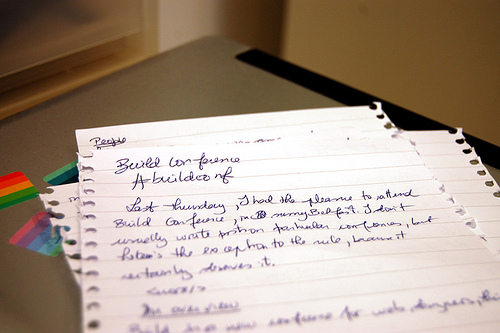 People
Build Conference
#buildconf
Last thursday, I had the pleasure to attend
Build Conference, in sunny Belfast. I don't
usually write posts on particular conferences, but
here's the exception to the rule, because it
certainly deserves it.
An overview
Build is a new conference for web designers,